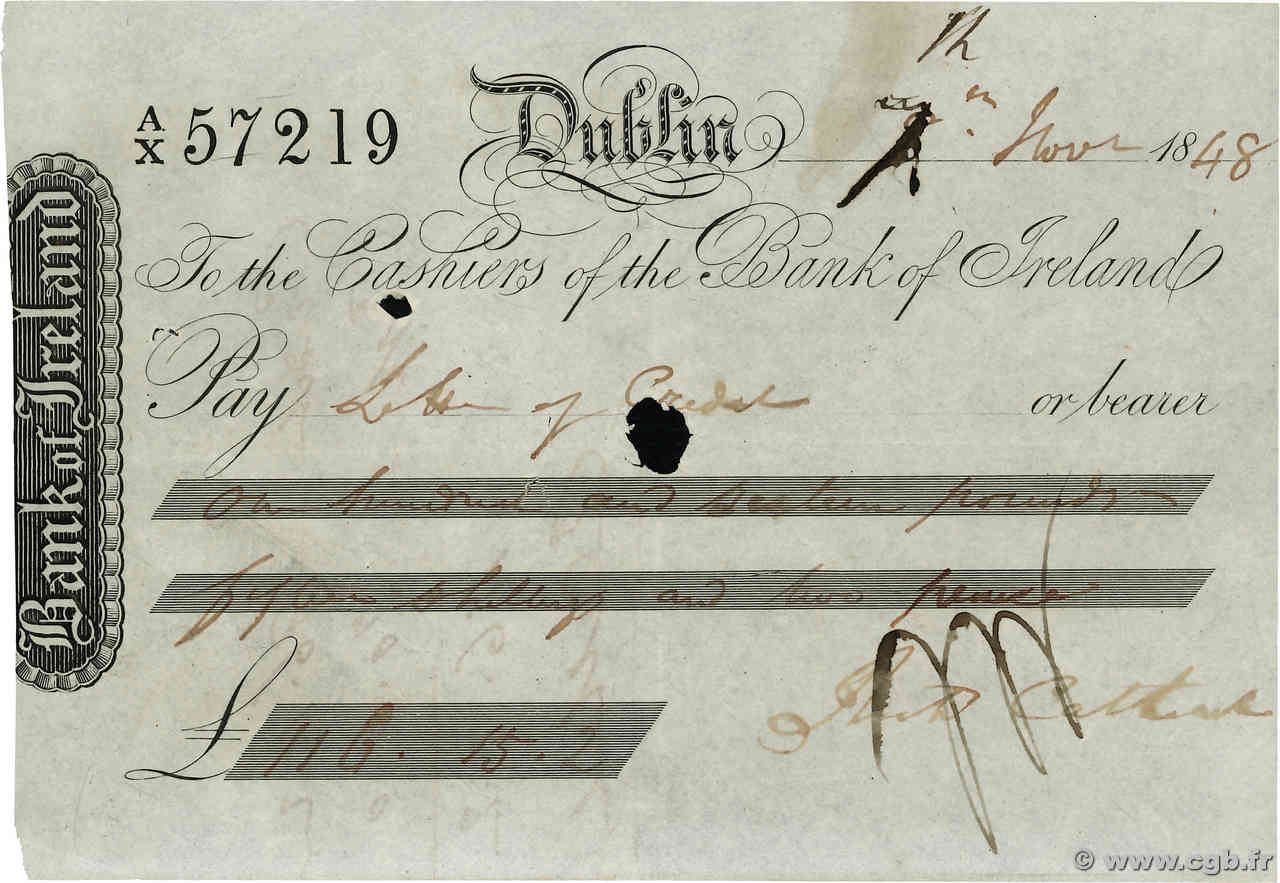 A/X 57219 Dublin Novr 1848
Bank of Ireland
To the Cashiers of the Bank of Ireland
Pay Letter of Credit or bearer
One hundred and sixteen pounds
fifteen shillings and two pence
£ 116. 15. 2
© www.cgb.fr